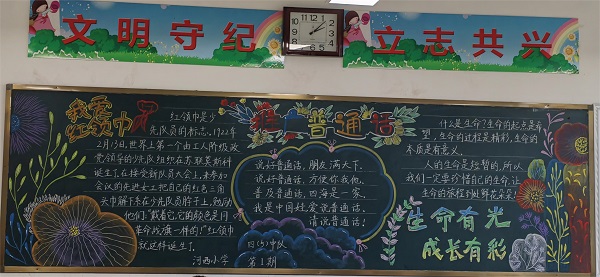 文明守纪
立志共兴
我爱
红领巾
红领巾是少
先队员的标志。1922年
2月13日,世界上第一个由工人阶级政
党领导的少先队组织在苏联莫斯科
诞生了,在接受新队员大会上,来参加
会议的先进女工把自己的红色三角
头巾解下系在少先队员脖子上,勉励
他们:“戴着它,它的颜色是同
革命战旗一样的!”红领巾
就这样诞生了。
河西小学
推广普通话
说好普通话,朋友满天下,
说好普通话,方便你我他。
普及普通话,四海是一家,
我是中国娃,爱说普通话。
请说普通话!
四(5)中队
第1期
什么是生命?生命的起点是希
望,生命的过程是精彩,生命的
本质是有意义。
人的生命是短暂的,所以
我们一定要珍惜自己的生命,让
生命的旅程到处鲜花朵朵!
生命有光
成长有彩